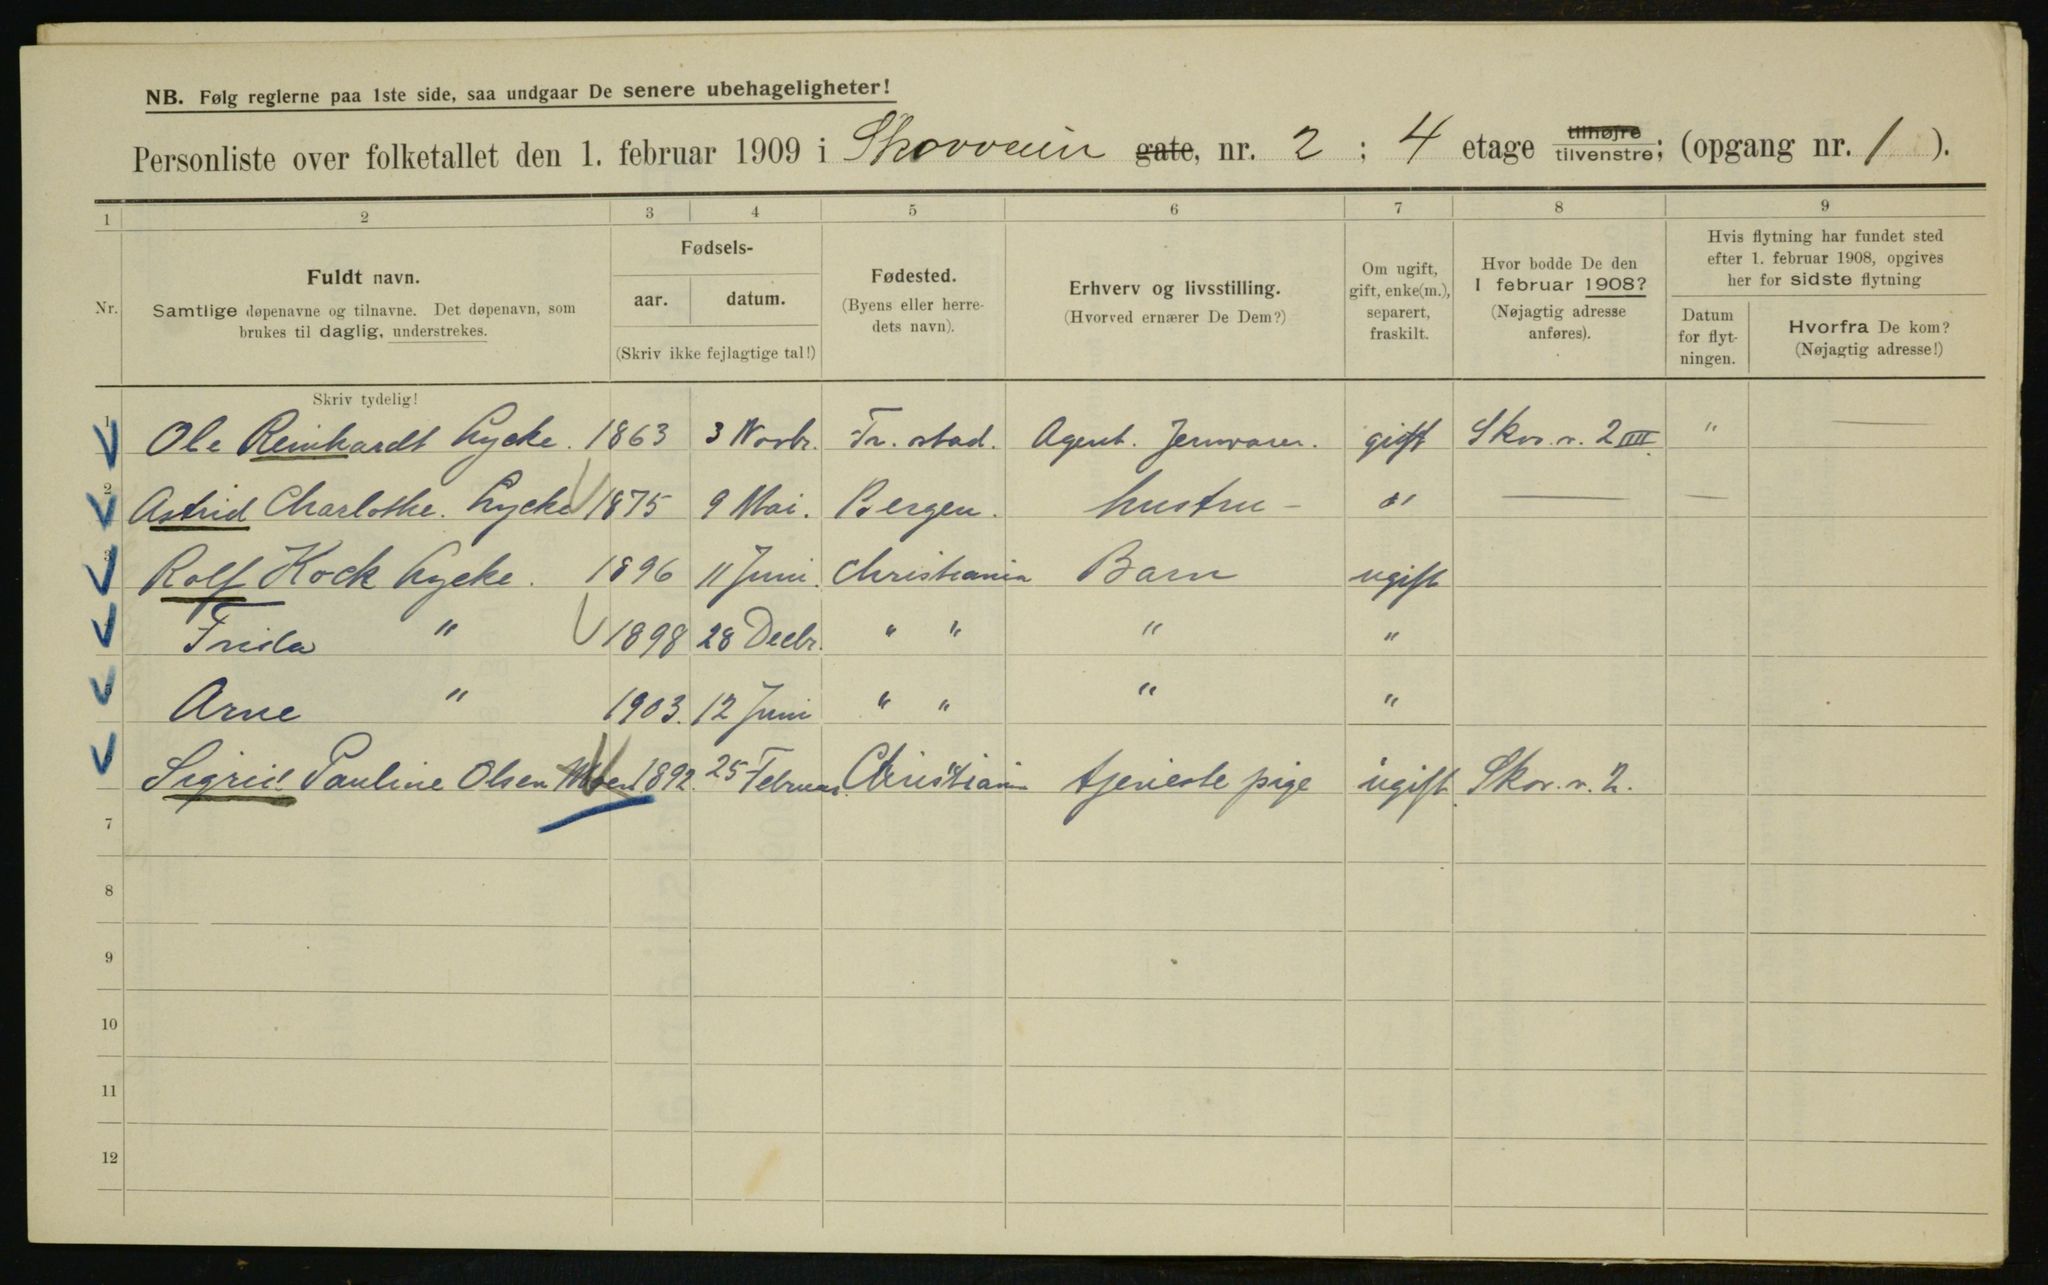 NB. Følg reglerne paa 1ste side, saa undgaar De senere ubehageligheter!
Personliste over folketallet den 1. februar 1909 i Skovveien gate, nr. 2 ; 4 etage tilhøjre tilvenstre; (opgang nr. 1 ).
1 2 3 4 5 6 7 8 9
Nr.
Fuldt navn.
Samtlige døpenavne og tilnavne. Det døpenavn, som
brukes til daglig, understrekes.
Fødsels-
aar. datum.
(Skriv ikke fejlagtige tal!)
Fødested.
(Byens eller herre-
dets navn).
Erhverv og livsstilling.
(Hvorved ernærer De Dem?)
Om ugift,
gift, enke(m.),
separert,
fraskilt.
Hvor bodde De den
1 februar 1908?
(Nøjagtig adresse
anføres).
Hvis flytning har fundet sted
efter 1. februar 1908, opgives
her for sidste flytning
Datum
for flyt-
ningen.
Hvorfra De kom?
(Nøjagtig adresse!)
Skriv tydelig!
1 Ole Reinhardt Lycke. 1863 3 Novbr. Fr.stad. Agent. Jernvarer. gift Skov. v. 2 IIII. " —
2 Astrid Charlothe. Lycke 1875 9 Mai. Bergen. hustru – " — —
3 Rolf Kock Lycke. 1896 11 Juni. Christiania Barn ugift
4 Frida " 1898 28 Decbr. " " " "
5 Arne " 1903. 12 Juni " " " "
Sigrid Pauline Olsen Moen 1892. 25 Februar. Christiania tjeneste pige ugift Skov. v. 2.
7
8
9
10
11
12